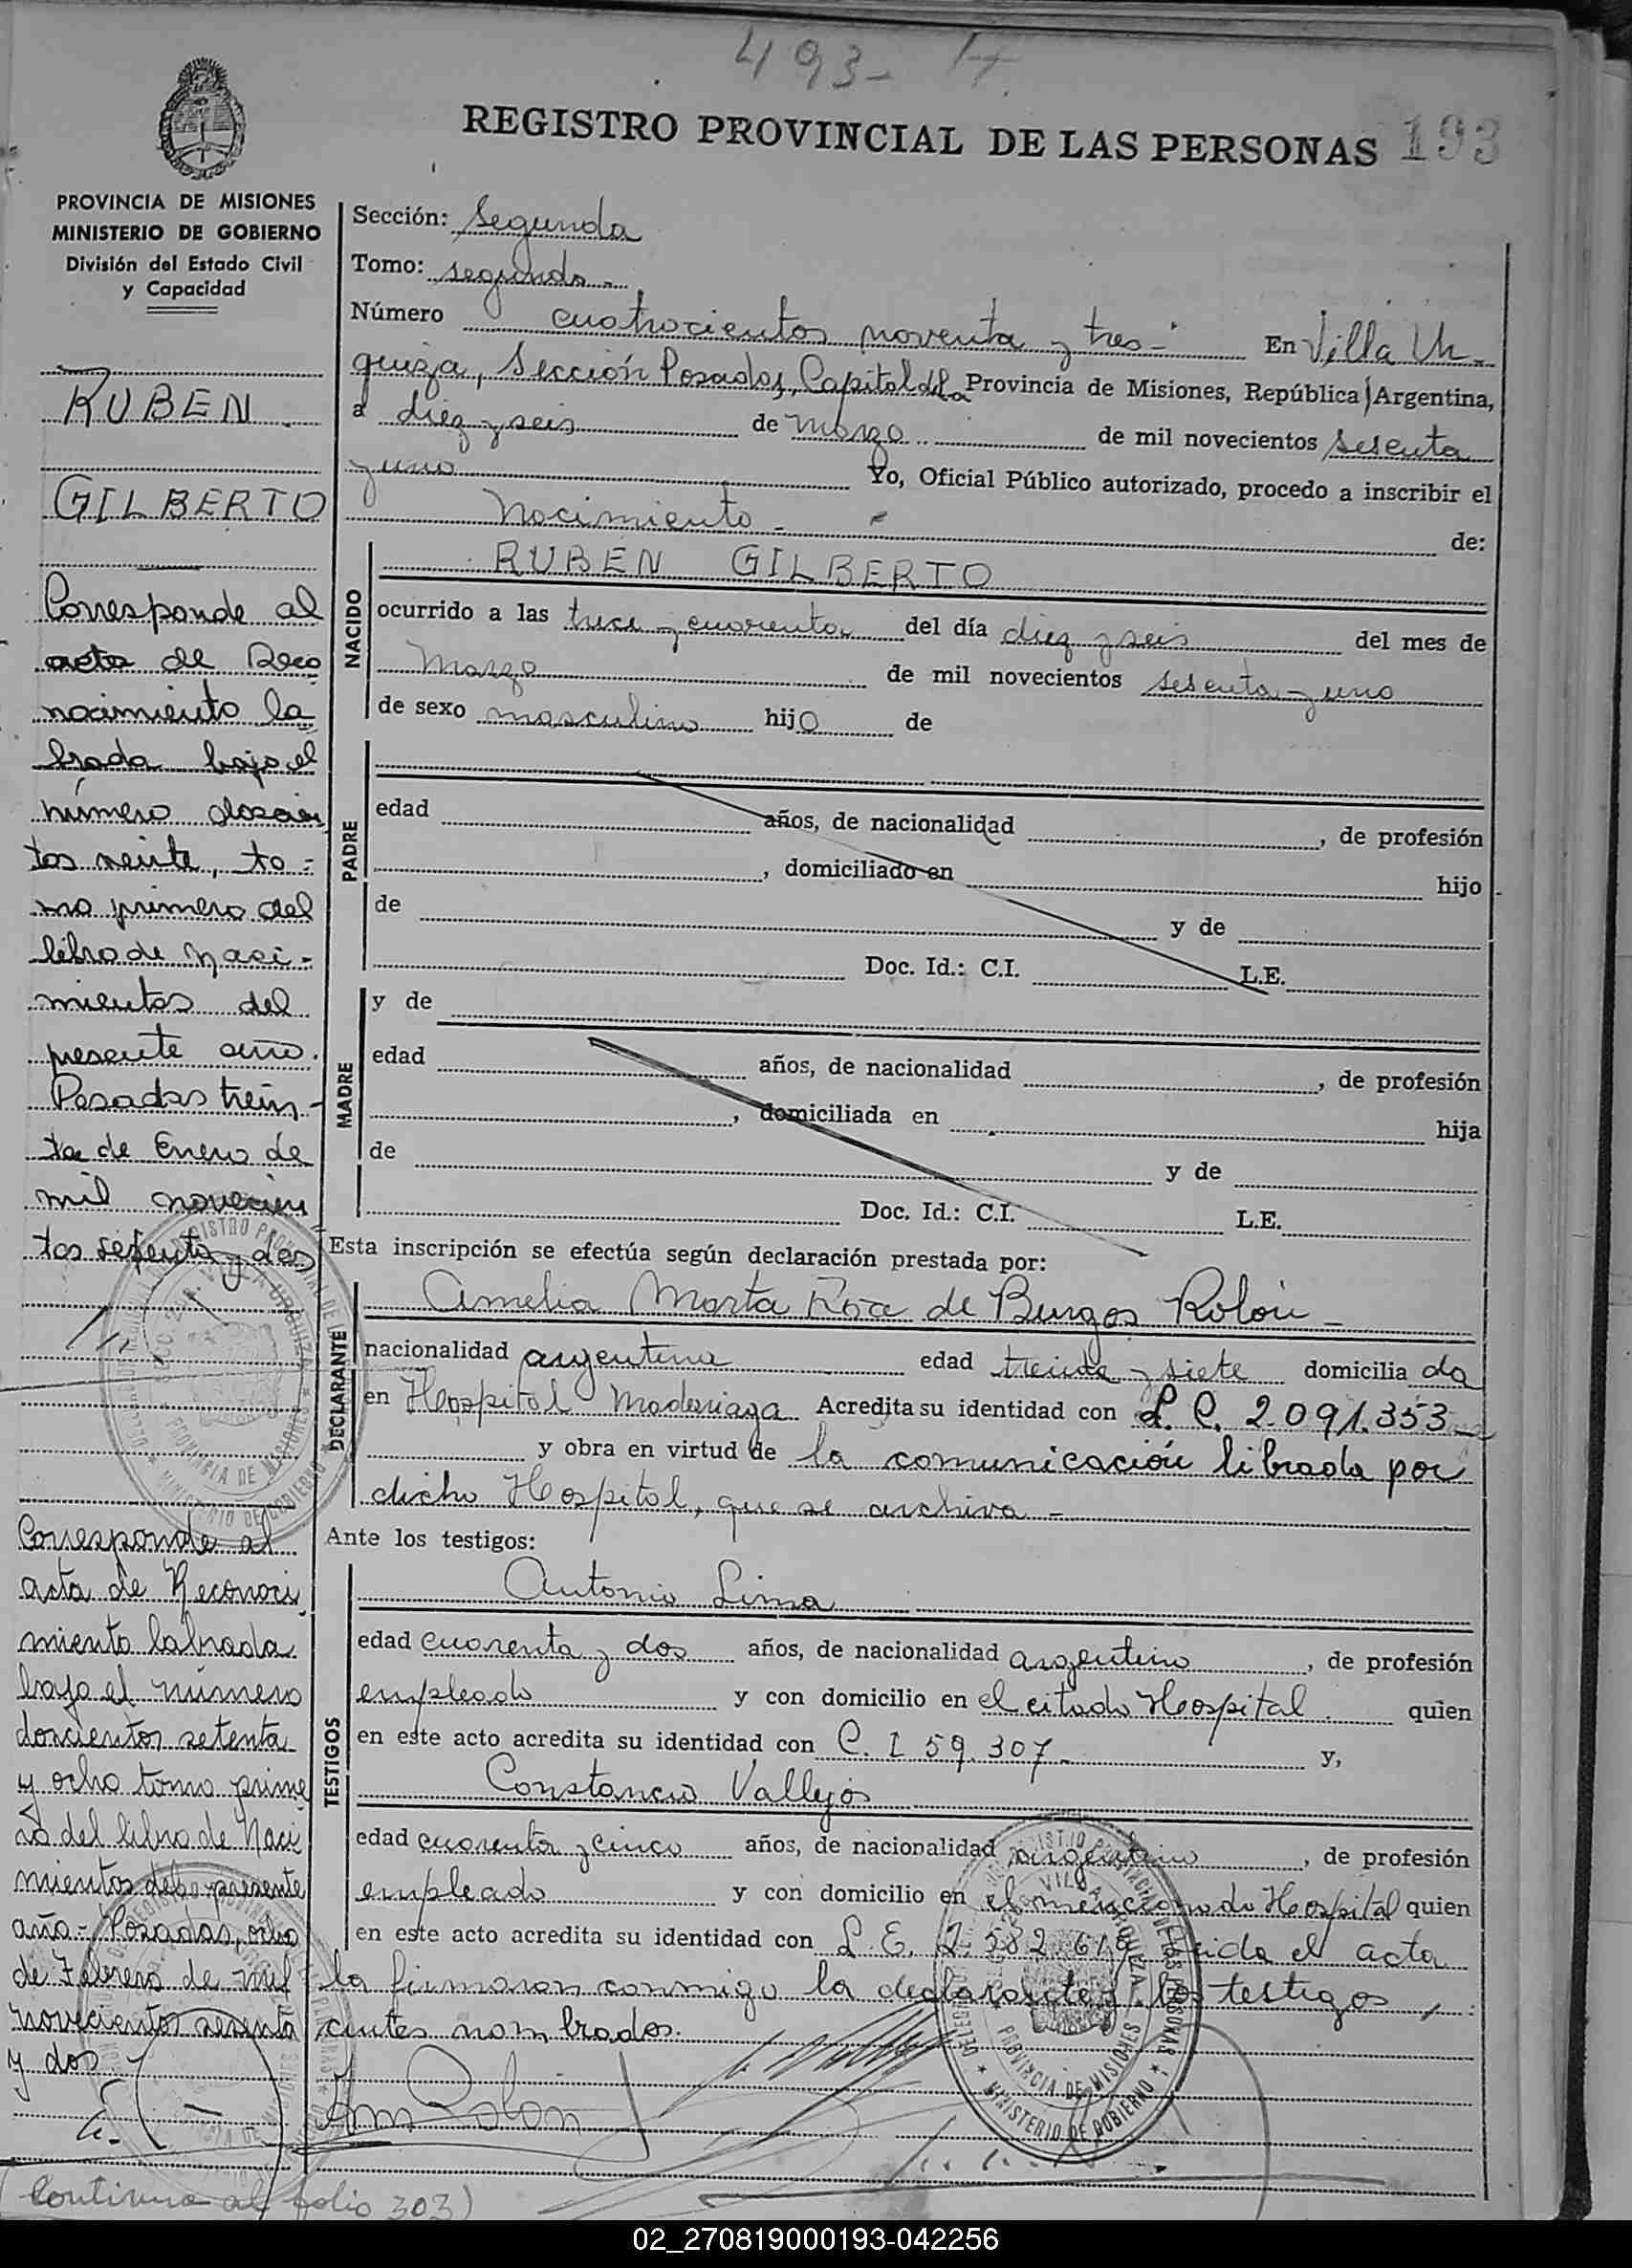 493- H.
REGISTRO PROVINCIAL DE LAS PERSONAS 193
PROVINCIA DE MISIONES
MINISTERIO DE GOBIERNO
División del Estado Civil
y Capacidad
RUBEN
GILBERTO
Corresponde al
acta de Reco
nocimiento la
brada bajo el
número doscien
tos veinte, to-
mo primero del
libro de Naci-
mientos del
presente año.
Posadas trein-
ta de Enero de
mil novecien
tos sesenta y dos
Corresponde al
acta de Reconoci
miento labrada
bajo el número
doscientos setenta
y ocho tomo prime
ro del libro de Naci
mientos del presente
año- Posadas, ocho
de Febrero de mil
novecientos sesenta
y dos.-
(Continua al folio 303)
Sección: Segunda
Tomo: segundo.-
Número cuatrocientos noventa y tres- En Villa Ur-
quiza, Sección Posadas, Capital de la Provincia de Misiones, República Argentina,
a diez y seis de marzo de mil novecientos sesenta
y uno Yo, Oficial Público autorizado, procedo a inscribir el
Nacimiento - de:
NACIDO
RUBEN GILBERTO
ocurrido a las trece y cuarenta del día diez y seis del mes de
Marzo de mil novecientos sesenta y uno
de sexo masculino hijo de
PADRE
edad años, de nacionalidad , de profesión
, domiciliado en hijo
de y de
Doc. Id.: C.I. L.E.
MADRE
y de
edad años, de nacionalidad , de profesión
, domiciliada en hija
de y de
Doc. Id.: C.I. L.E.
Esta inscripción se efectúa según declaración prestada por:
DECLARANTE
Amelia Marta Roa de Burgos Rolón -
nacionalidad argentina edad treinta y siete domicilia da
en Hospital Madariaga Acredita su identidad con L. C. 2.091.353
y obra en virtud de la comunicación librada por
dicho Hospital, que se archiva -
Ante los testigos:
TESTIGOS
Antonio Lima
edad cuarenta y dos años, de nacionalidad argentino , de profesión
empleado y con domicilio en el citado Hospital quien
en este acto acredita su identidad con C. I 59.307- y,
Constancio Vallejos
edad cuarenta y cinco años, de nacionalidad argentino , de profesión
empleado y con domicilio en el mencionado Hospital quien
en este acto acredita su identidad con L.E. Leida el acta
la firmaron conmigo la declarante y los testigos,
antes nombrados.
Am Rolon
REGISTRO PROVINCIAL DE LAS PERSONAS
VILLA URQUIZA
PROVINCIA DE MISIONES
MINISTERIO DE GOBIERNO
02_270819000193-042256